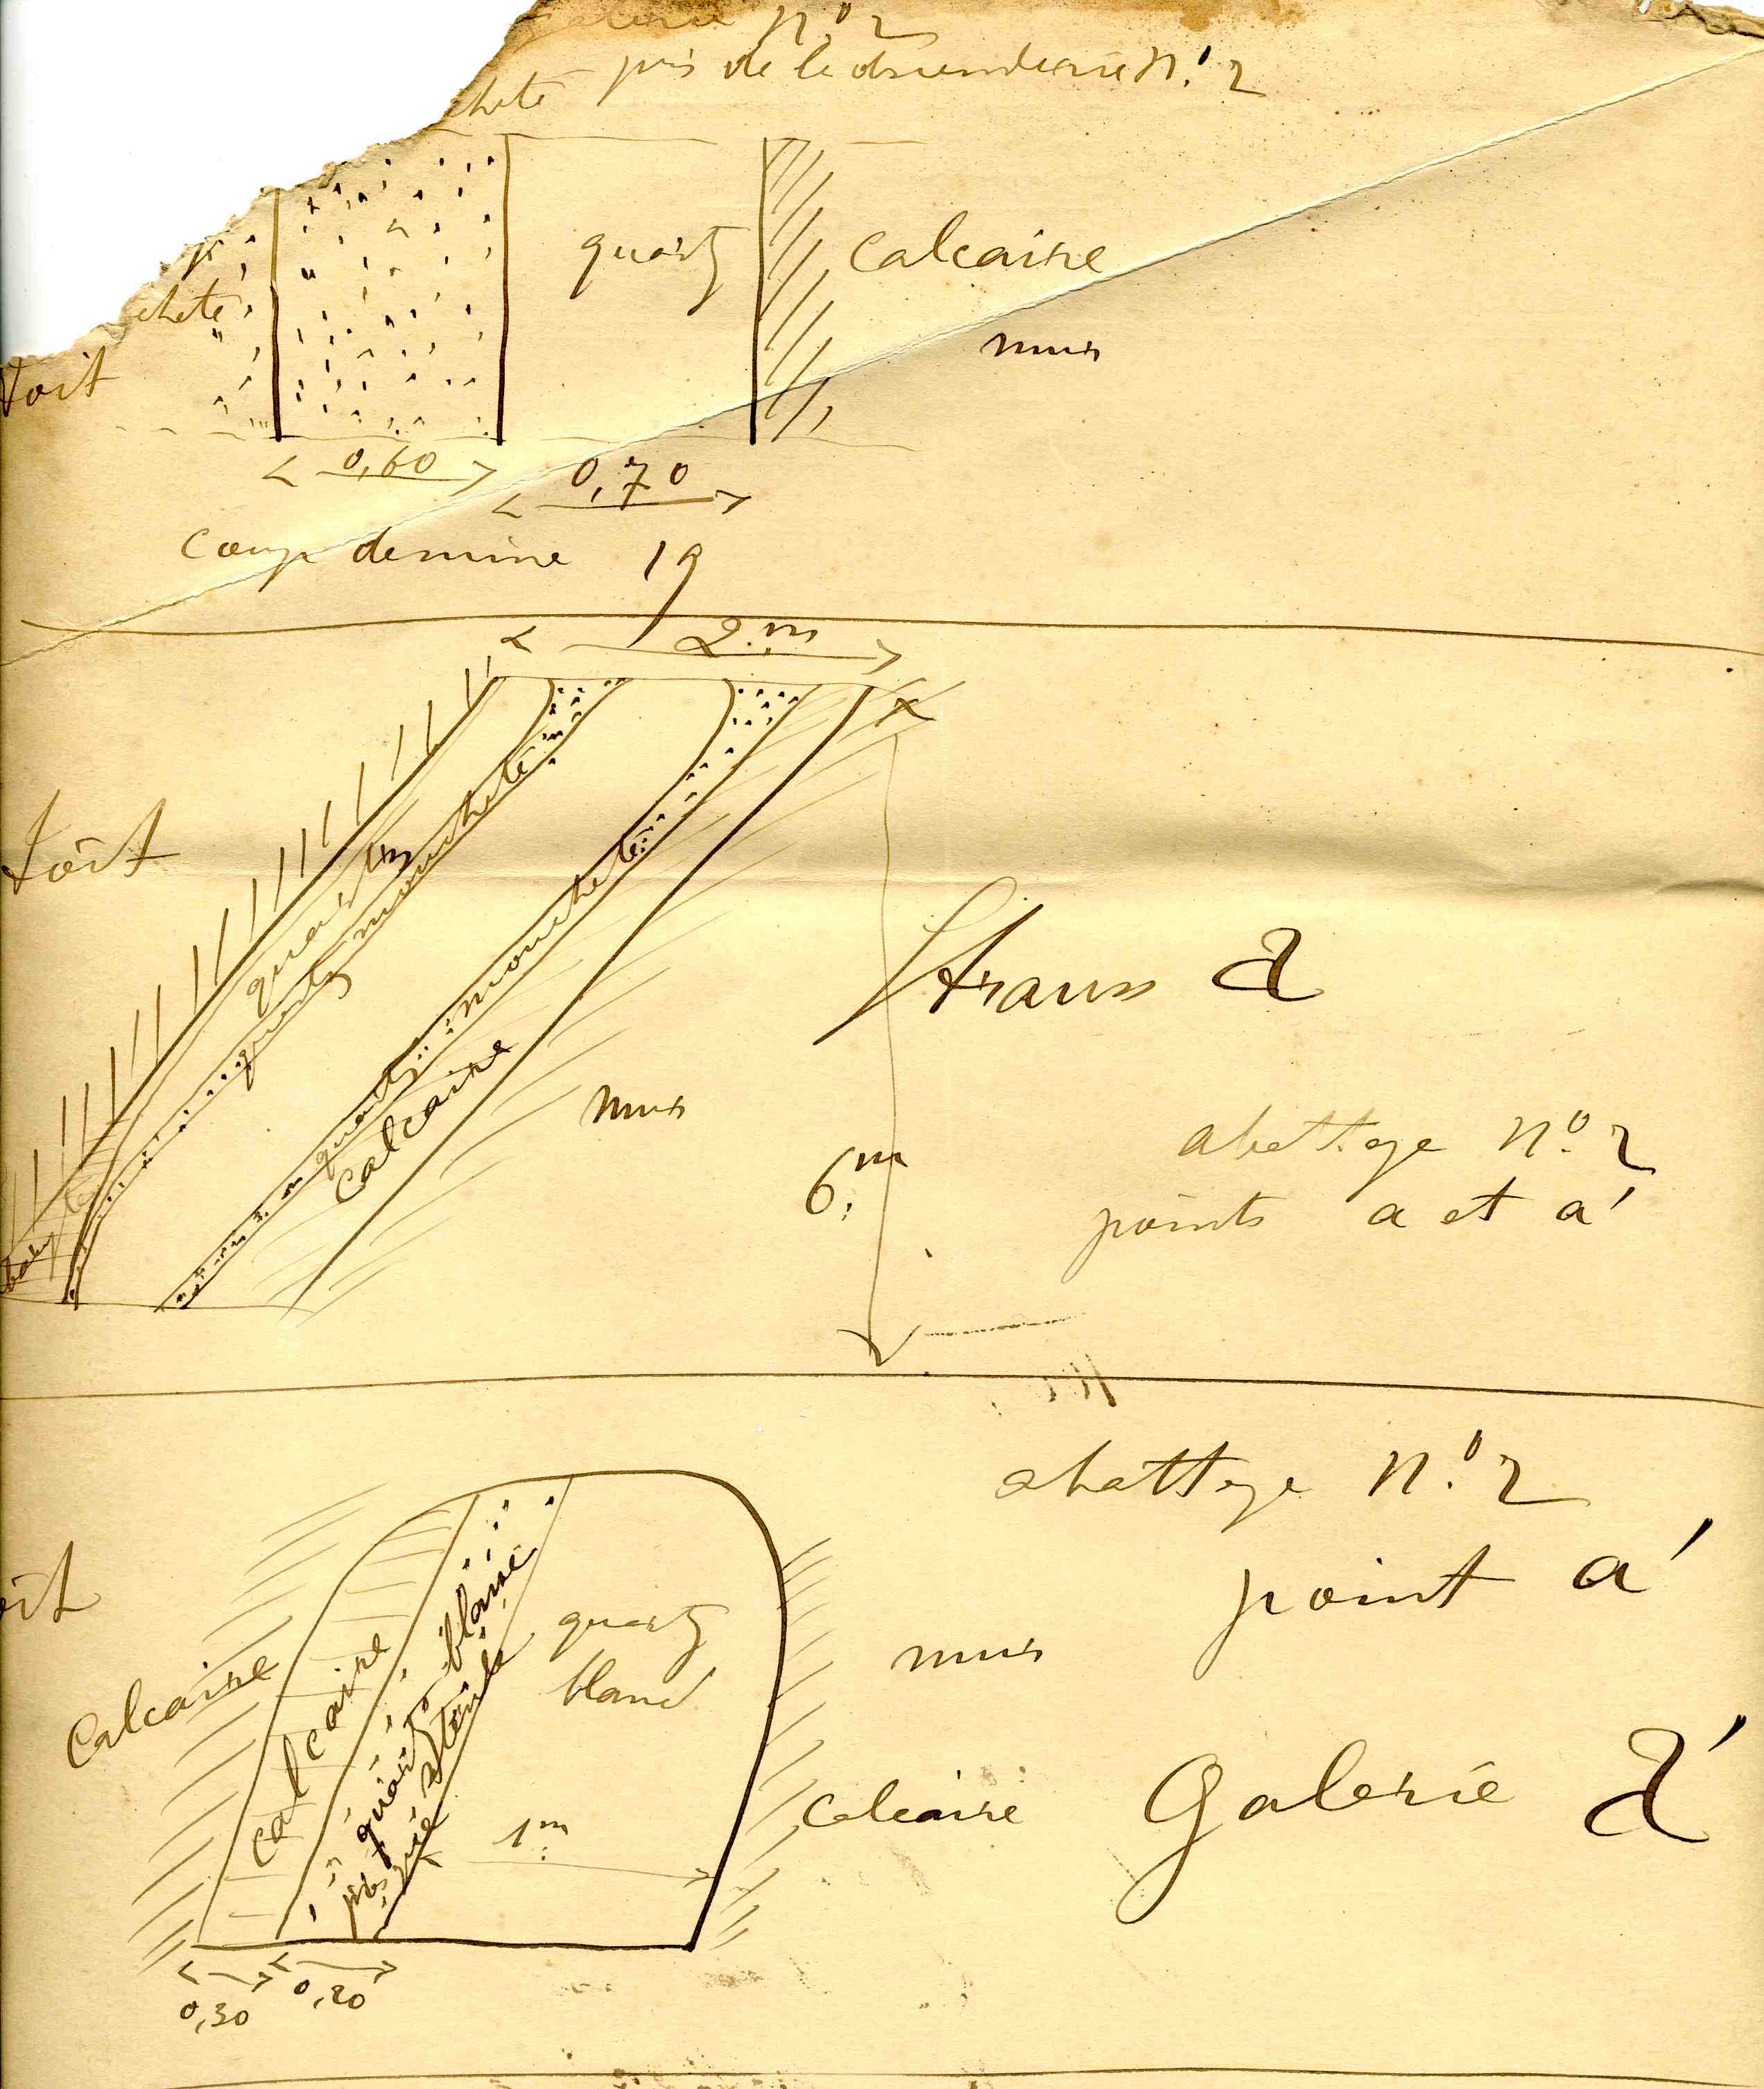 n.º 2
près de la descenderie n.º 2
chete
quartz
calcaire
chete
mur
toit
0,60
0,70
coup de mine 19
2.m
toit
quartz
quartz moucheté
quartz moucheté
calcaire
mur
Strauss a
6.m
abattage n.º 2
points a et a'
abattage n.º 2
point a'
oit
calcaire
calcaire
quartz
blanc
mur
calcaire
Galerie a'
1.m
0,30
0,20